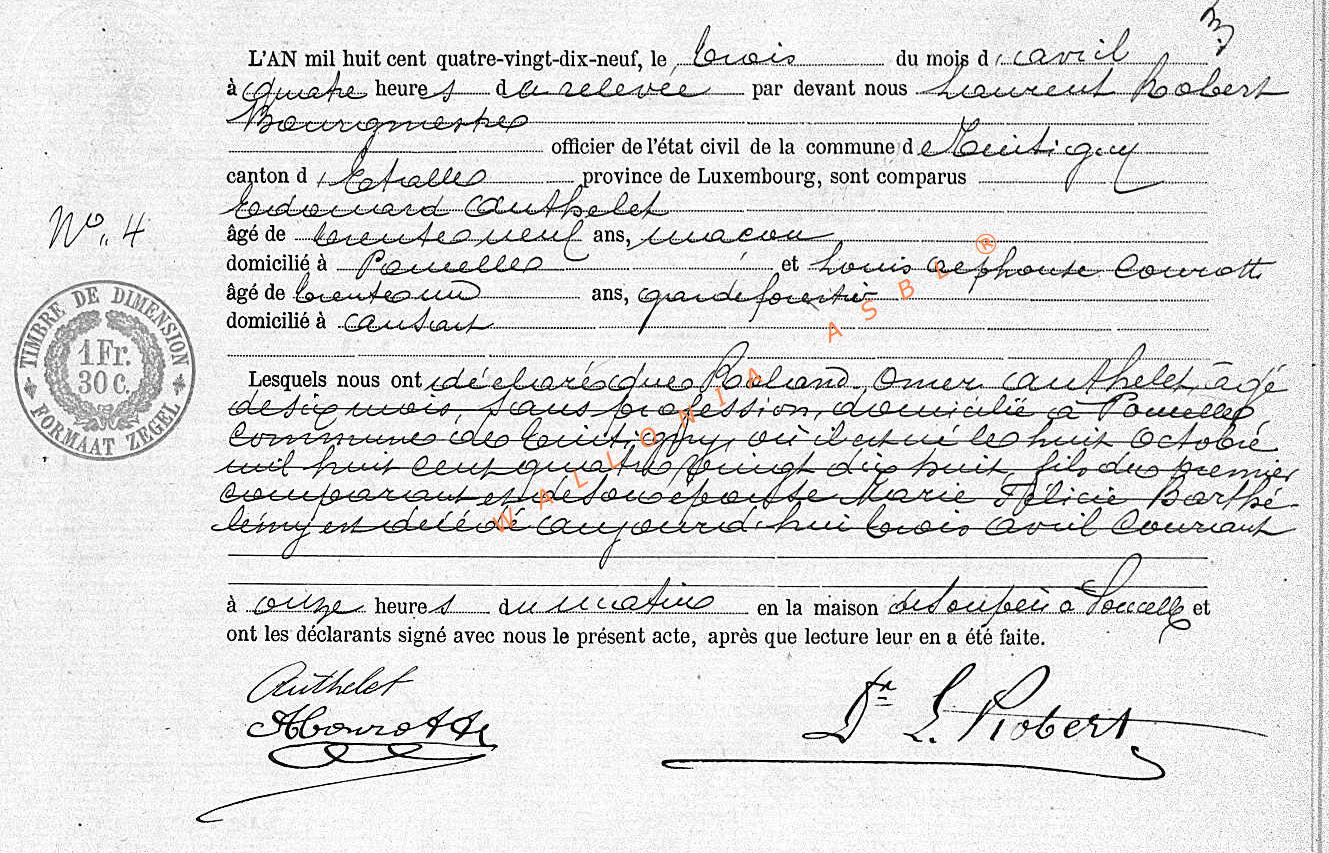 3
L'AN mil huit cent quatre-vingt-dix-neuf, le trois du mois d'avril
à quatre heures de relevée par devant nous Laurent Robert
Bourgmestre
officier de l'état civil de la commune de Tintigny
canton d'Etalle province de Luxembourg, sont comparus
Edouard Authelet
âgé de trente neuf ans, maçon
domicilié à Poncelle et Louis Alphonse Courott
âgé de trente un ans, garde forestier
domicilié à Ansart
Lesquels nous ont déclaré que Roland, Omer Authelet, âgé
de six mois, sans profession, domicilié à Poncelle,
commune de Tintigny, où il est né le huit octobre
mil huit cent quatre vingt dix huit, fils du premier
comparant et de son epouse Marie Félicie Barthé-
lémy est décédé aujourd'hui trois avril courant
à onze heures du matin en la maison de son père à Poncelle et
ont les déclarants signé avec nous le présent acte, après que lecture leur en a été faite.
Authelet
Dr L. Robert
No. 4
TIMBRE DE DIMENSION
1 Fr.
30 C.
FORMAAT ZEGEL
WALLONIA ASBL ®